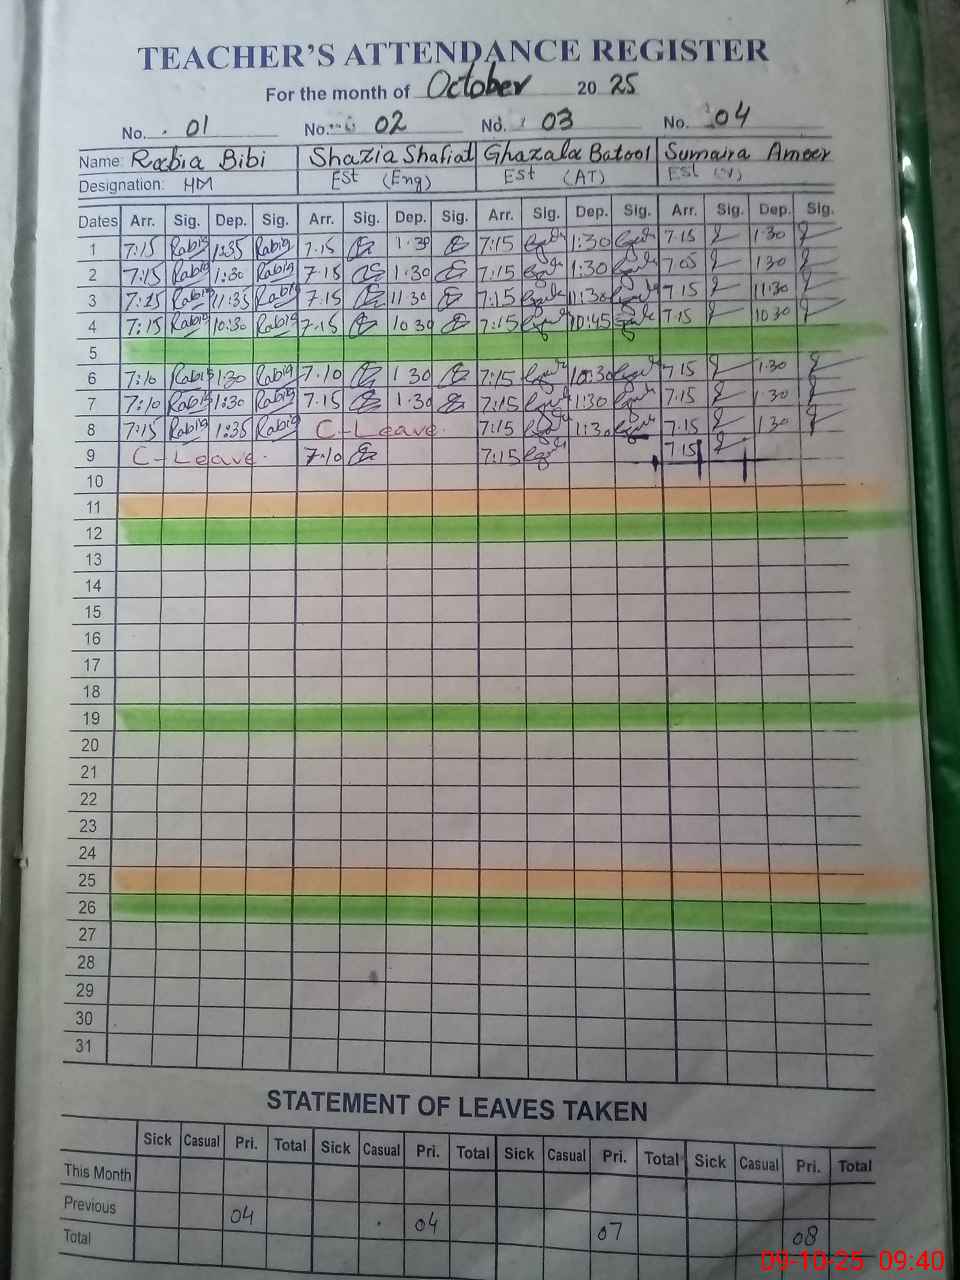 TEACHER'S ATTENDANCE REGISTER
For the month of October 20 25
No. 01 No. 02 No. 03 No. 04
Name: Rabia Bibi Shazia Shafiat Ghazala Batool Sumaira Ameer
Designation: HM Est (Eng) Est (AT) Est (V)
Dates Arr. Sig. Dep. Sig. Arr. Sig. Dep. Sig. Arr. Sig. Dep. Sig. Arr. Sig. Dep. Sig.
1 7:15 Rabia 1:35 Rabia 7.15 1.30 7:15 1:30 7.15 1.30
2 7:15 Rabia 1:30 Rabia 7.15 1.30 7:15 1:30 7.05 1.30
3 7:15 Rabia 11:35 Rabia 7.15 11.30 7:15 11:30 7.15 11.30
4 7:15 Rabia 10:30 Rabia 7.15 10 30 7:15 10:45 7.15 10 30
5
6 7:10 Rabia 1:30 Rabia 7.10 1 30 7:15 7.15 1.30
7 7:10 Rabia 1:30 Rabia 7.15 1.30 7:15 1:30 7.15 1.30
8 7:15 Rabia 1:35 Rabia C-Leave. 7:15 1:30 7.15 1.30
9 C-Leave. 7.10 7:15 7.15
10
11
12
13
14
15
16
17
18
19
20
21
22
23
24
25
26
27
28
29
30
31
STATEMENT OF LEAVES TAKEN
Sick Casual Pri. Total Sick Casual Pri. Total Sick Casual Pri. Total Sick Casual Pri. Total
This Month
Previous 04 04 07 08
Total
09-10-25 09:40